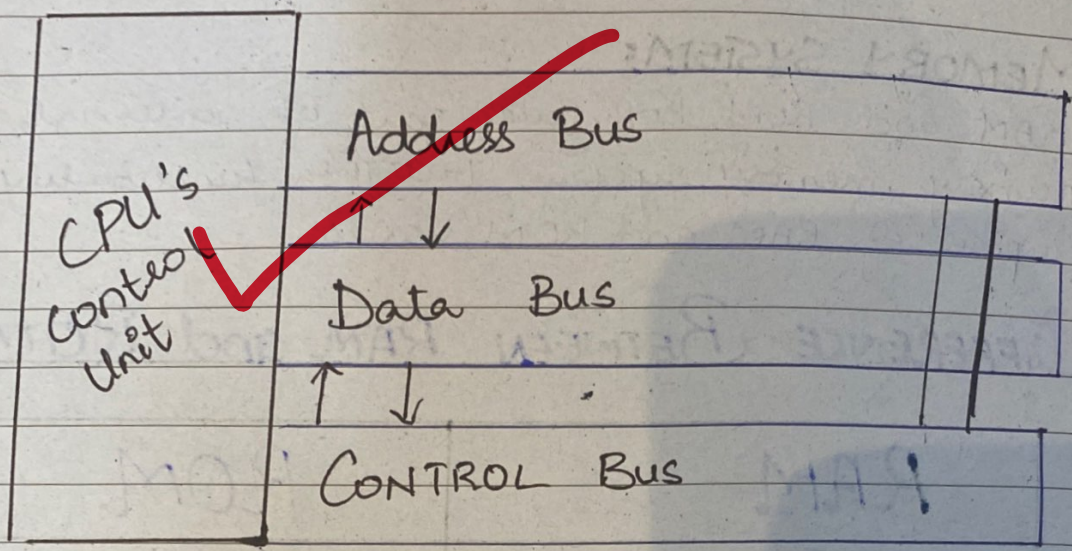 CPU's
Control
Unit
Address Bus
Data Bus
CONTROL BUS